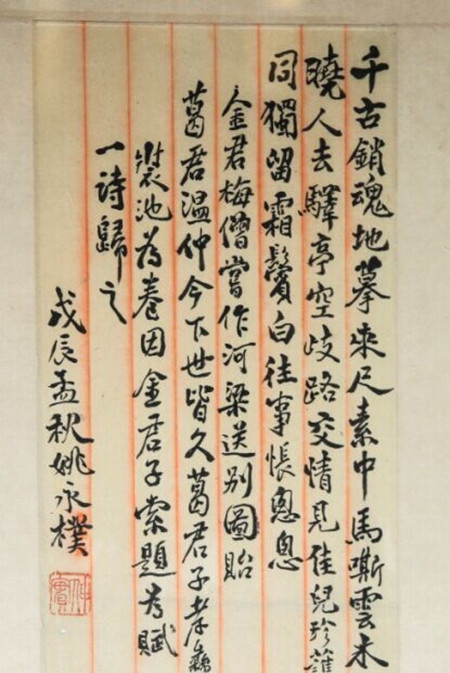 千古銷魂地摹來尺素中馬嘶雲未
曉人去驛亭空歧路交情見佳兒珍護
同獨留霜鬢白往事悵悤悤
金君梅僧嘗作河梁送別圖貽
葛君溫仲今下世皆久葛君子孝
裝池為卷因金君子索題為賦
一詩歸之
戊辰孟秋姚永樸
仲實